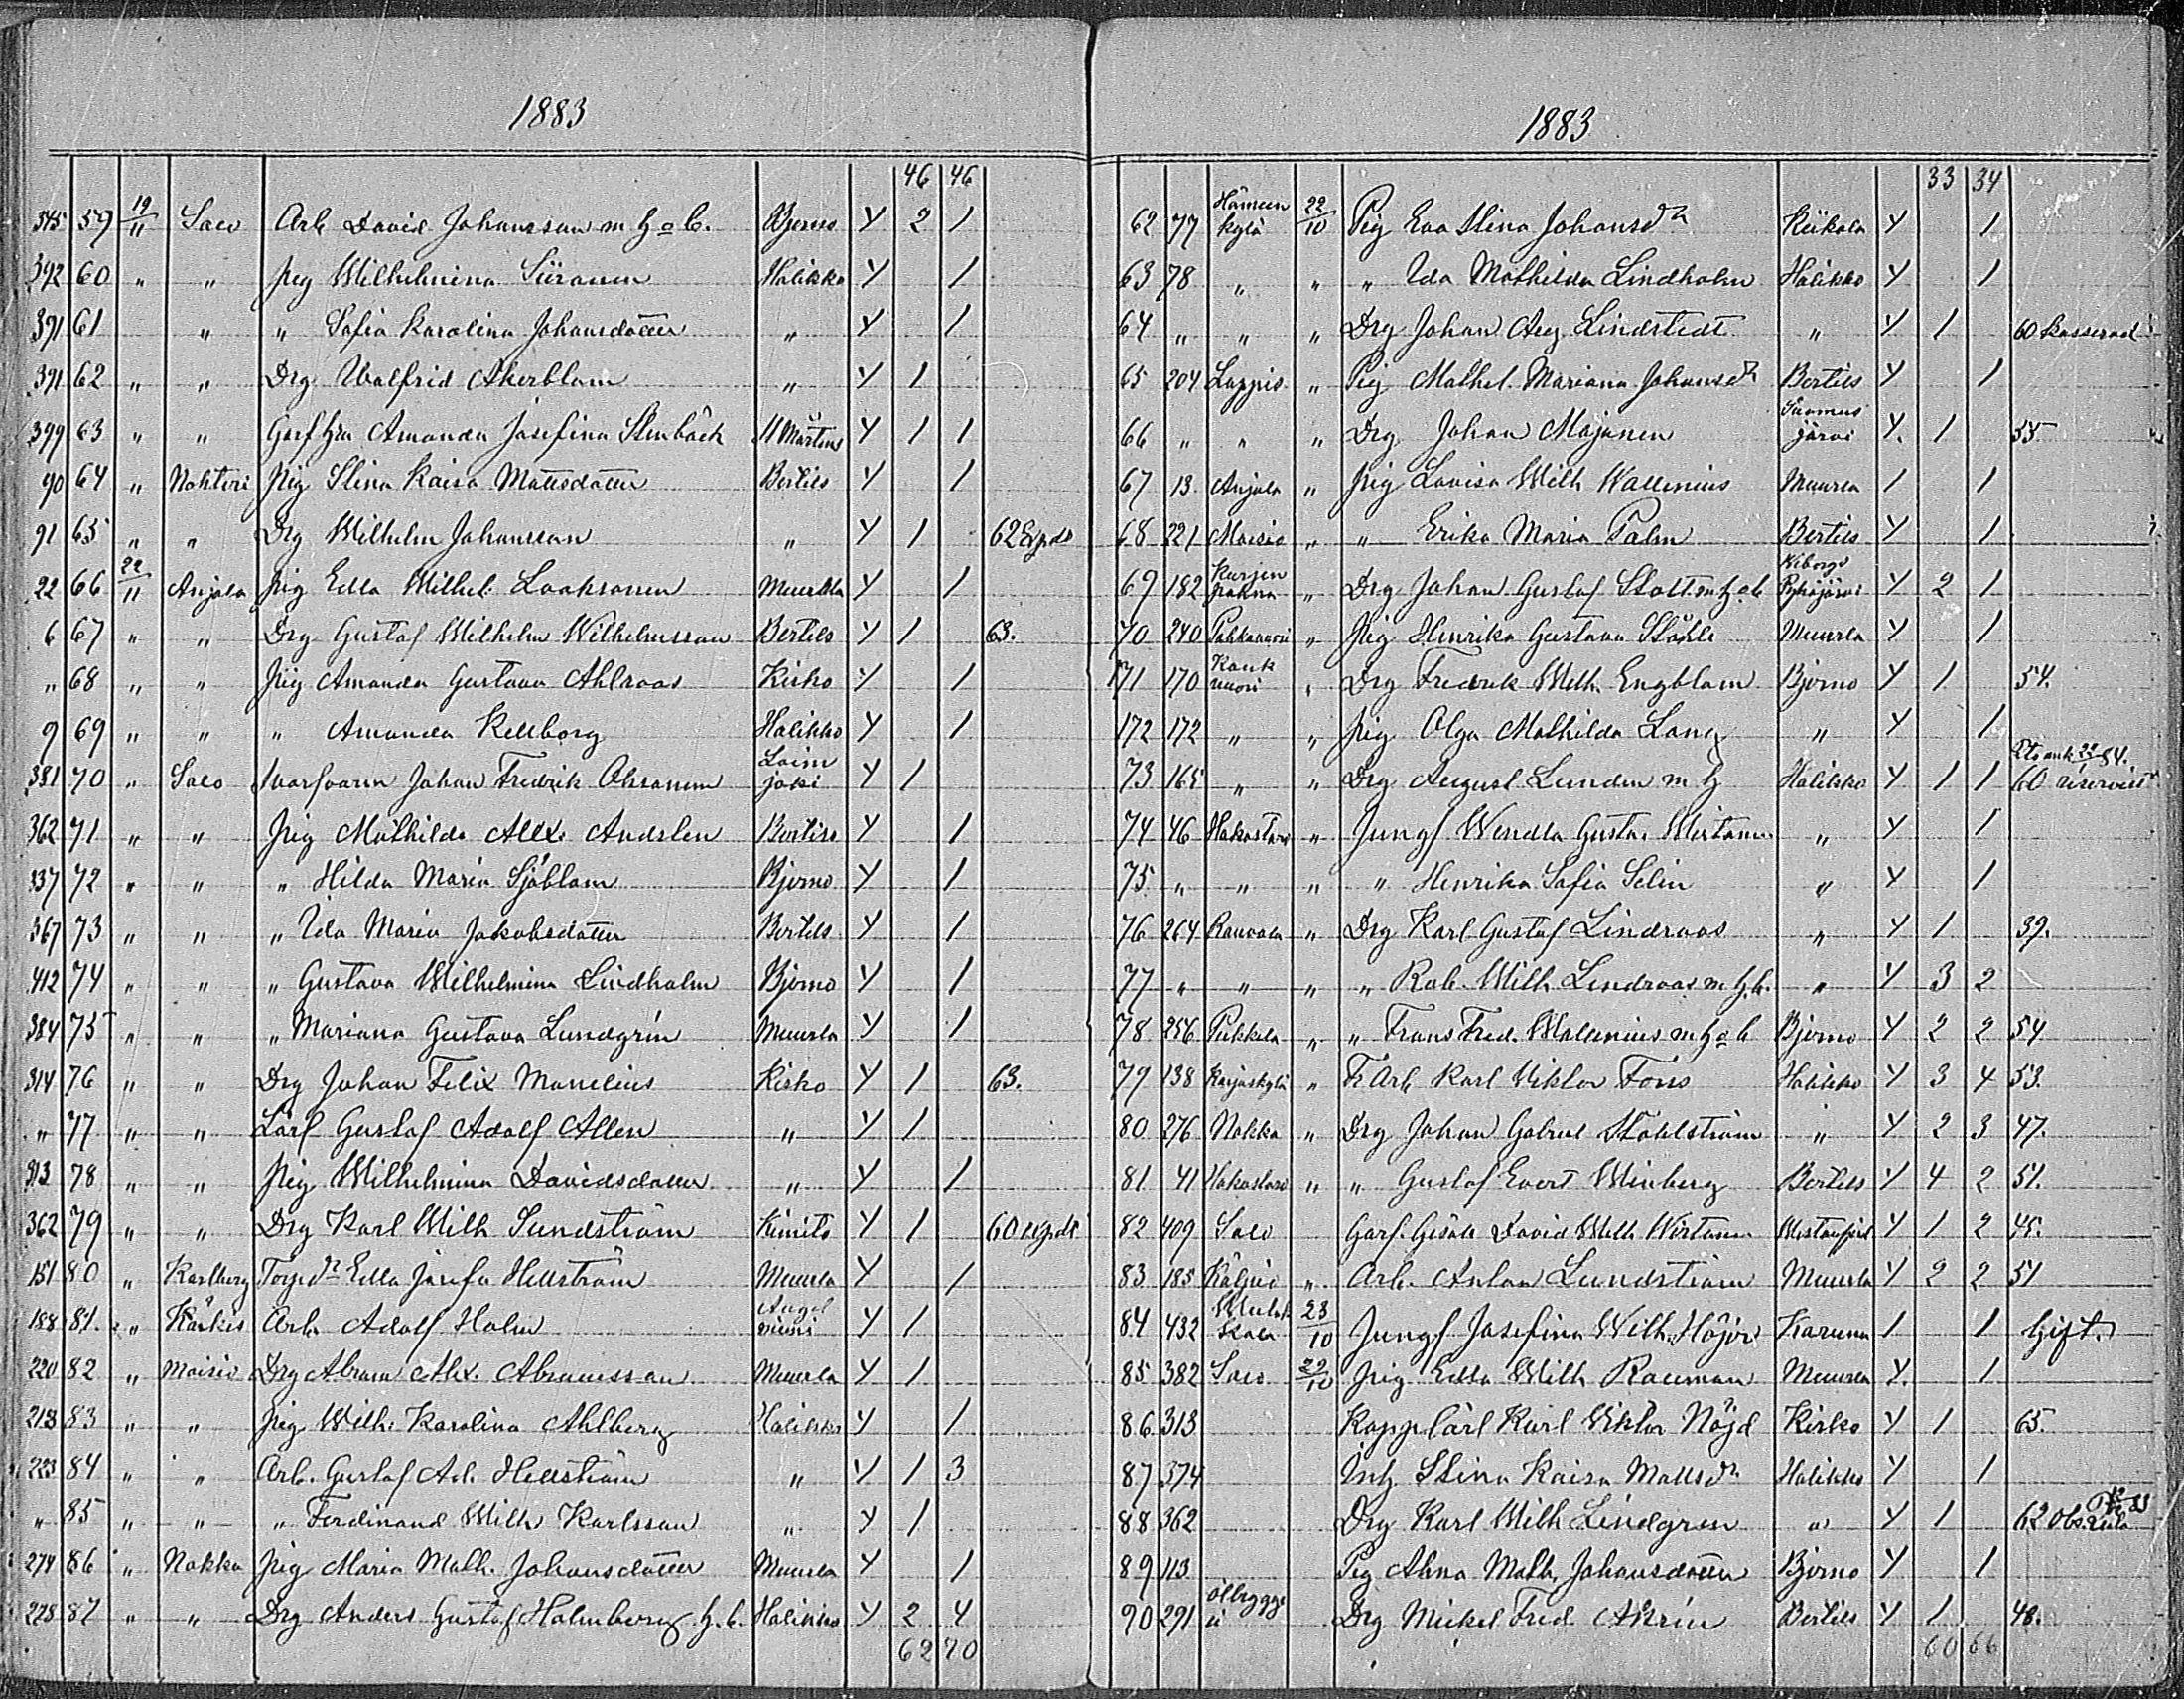 1883
46 46
545 59 19/11 Salo Arb David Johansson m h o b. Bjerno Y 2 1
392 60 " " Pig Wilhelmina Siiranen Halikko Y 1
391 61 " " Sofia Karolina Johansdotter " Y 1
391 62 " " Drg Walfrid Åkerblom " Y 1
399 63 " " Garf hu Amanda Josefina Stenbäck St Mårtens Y 1 1
90 64 " Nohteri Pig Stina Kaisa Mattsdotter Bertils Y 1
91 65 " " Drg Wilhelm Johansson " Y 1 62 Expds
22 66 22/11 Anjala Pig Edla Wilhel. Laaksonen Muurla Y 1
6 67 " " Drg Gustaf Wilhelm Wilhelmsson Bertils Y 1 63.
" 68 " " Pig Amanda Gustava Ahlroos Kisko Y 1
9 69 " " " Amanda Kellborg Halikko Y 1
381 70 " Salo Johan Fredrik Oksanen Loimjoki Y 1
362 71 " " Pig Mathilda Alex. Andelin Bertils Y 1
337 72 " " " Hilda Maria Sjöblom Bjerno Y 1
367 73 " " " Ida Maria Jakobsdotter Bertils Y 1
412 74 " " " Gustava Wilhelmina Lindholm Bjerno Y 1
384 75 " " " Mariana Gustava Lundgrén Muurla Y 1
314 76 " " Drg Johan Felix Manelius Kisko Y 1 63.
" 77 " " Lärl Gustaf Adolf Allen " Y 1
313 78 " " Pig Wilhelmina Davidsdotter " Y 1
362 79 " " Drg Karl Wilh Sundström Kimito Y 1 60 expdt
151 80 " Karlberg Torpdr Edla Josefa Hellström Muurla Y 1
188 81. " Kärkis Arb. Adolf Holm Angelniemi Y 1
220 82 " Maisio Drg Abram Alex. Abramsson Muurla Y 1
213 83 " " Pig Wilh. Karolina Ahlberg Halikko Y 1
223 84 " " Arb. Gustaf Ad. Hellström " Y 1 3
" 85 " " " Ferdinand Wilh Karlsson " Y 1
274 86 " Nokka Pig Maria Math. Johansdotter Muurla Y 1
278 87 " " Drg Anders Gustaf Holmberg h. b. Halikko Y 2 4
62 70
1883
33 34
62 77 Hämeenkylä 22/10 Pig Eva Stina Johansdr Kiikala Y 1
63 78 " " " Ida Mathilda Lindholm Halikko Y 1
64 " " " Drg Johan Aug Lindstedt " Y 1 60 kasserad
65 204 Lappis " Pig Mathel. Mariana Johansdr Bertils Y 1
66 " " " Drg Johan Majanen Suomusjärvi Y. 1 55
67 13. Anjala " Pig Lovisa Wilh Wallenius Muurla 1 1
68 221 Maisio " " Erika Maria Palm Bertils Y 1
69 182 Kurjenpahna " Drg Johan Gustaf Slott m h o b Wiborgs Pyhäjärvi Y 2 1
70 240 Pahkavuori " Pig Henrika Gustava Ståhle Muurla Y 1
171 170 Kaukvuori " Drg Fredrik Wilh. Engblom Bjerno Y 1 54.
172 172 " " Pig Olga Mathilda Lang " Y 1
73 165 " " Drg August Lunden m h Halikko Y 1 1 60 reservist
74 46 Hakostaro " Jungf Wendla Gusta. Wirtanen " Y 1
75. " " " " Henrika Sofia Selin " Y 1
76 264 Rauvola " Drg Karl Gustaf Lindroos " Y 1 39.
77 " " " " Rob. Wilh Lindroos m h. b. " Y 3 2
78 256 Pukkila " " Frans Fred. Wallenius m h o b Bjerno Y 2 2 54
79 138 Karjaskylä " F. Arb Karl Viktor Fors Halikko Y 3 4 53.
80 276 Nokka " Drg Johan Gabriel Ståhlström " Y 2 3 47.
81 41 Hakostaro " " Gustaf Evert Winberg Bertils Y 4 2 51.
82 409 Salo Garf. Gesäll David Wilh Wirtanen Westanfjerd Y 1 2 45.
83 185 Käljus " Arb. Anton Lundström Muurla Y 2 2 51
84 432 23/10 Jungf Josefina Wilh. Höjer Karuna 1 1 Gift.
85 382 Salo 22/10 Pig Edla Wilh Rauman Muurla Y. 1
86 313 Kopp lärl Karl Viktor Nöjd Kisko Y 1 65.
87 374 Inh Stina Kaisa Mattsdr Halikko Y 1
88 362 Drg Karl Wilh Lindgren " Y 1 62 Obs.
89 113 Pig Alma Math. Johansdotter Bjerno Y 1
90 291 Ölbyggeri Drg Mickel Fred Åkrén Bertils Y 1 48.
60 66